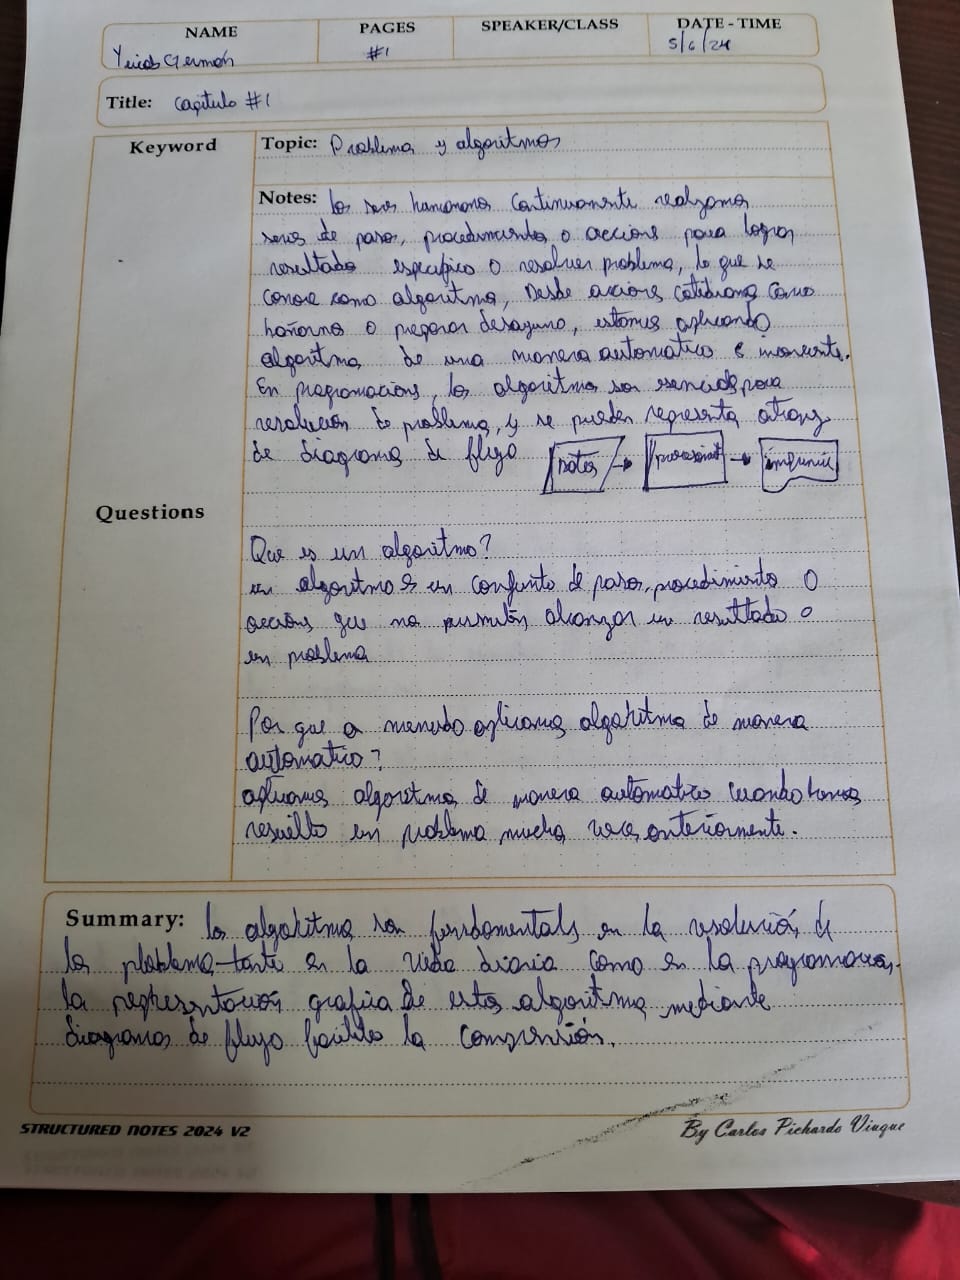 NAME
PAGES
SPEAKER/CLASS
DATE - TIME
Germón
#1
5/6/24
Title: Capitulo #1
Keyword
Topic: Problema y algoritmos
Notes: los seres continuamente realizamos
series de pasos, procedimientos o acciones para lograr
resultado especifico o resolver problema, lo que se
conoce como algoritma, Desde acciones cotidianas como
o preparar desayuno, estamos aplicando
algoritma de una manera automatico e
En programacions, los algoritma son esenciales para
resolución de problema, y se pueden representa
de diagrama de flujo
Datos
procesamient
imprimir
Questions
Que es un algoritmo?
un algoritmo es un conjunto de pasos, procedimiento o
accións que no permiten alcanzar un resultado o
un problema
Por que a menudo aplicamos algoritma de manera
automatico?
aplicamos algoritma de manera automatico cuando hemos
resuelto un problema mucha veces anteriormente.
Summary: los algoritma son fundamentals en la resolución de
los ploblema tanto en la vida diaria como en la programacion.
la representación grafica de estos algoritma mediante
diagramas de flujo facilita la comprensión.
STRUCTURED NOTES 2024 V2
By Carlos Pichardo Viuque